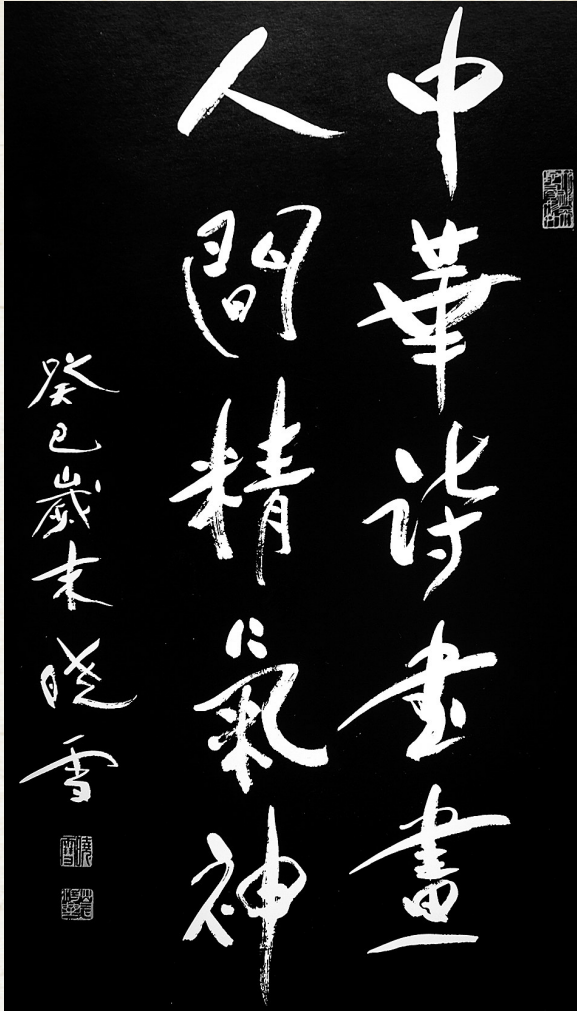 中華詩書畫
人間精氣神
癸巳歲末曉雪